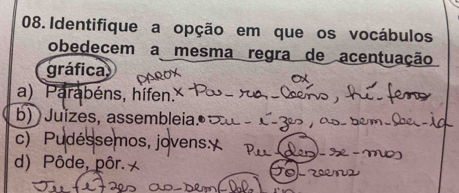 08. Identifique a opção em que os vocábulos
obedecem a mesma regra de acentuação
gráfica.
PAROX OX
a) Parabéns, hífen.x Pa-ra-béns, hí-fens
b) Juízes, assembleia. Ju-í-zes, as-sem-blei-ia
c) Pudéssemos, jovens.x Pu-dés-se-mos
d) Pôde, pôr.x Jo-vens
Ju-í-zes as-sem